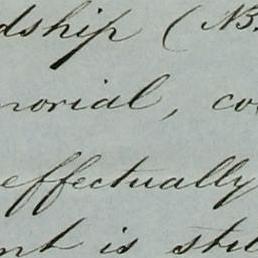 dship (NB.
morial, co
effectually
nt is stil